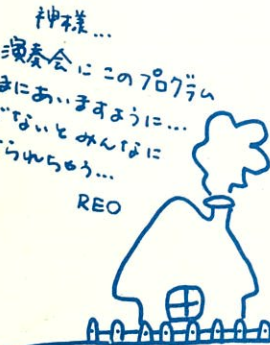 神様...
演奏会にこのプログラム
まにあいますように...
ないとみんなに
られちゃう...
REO